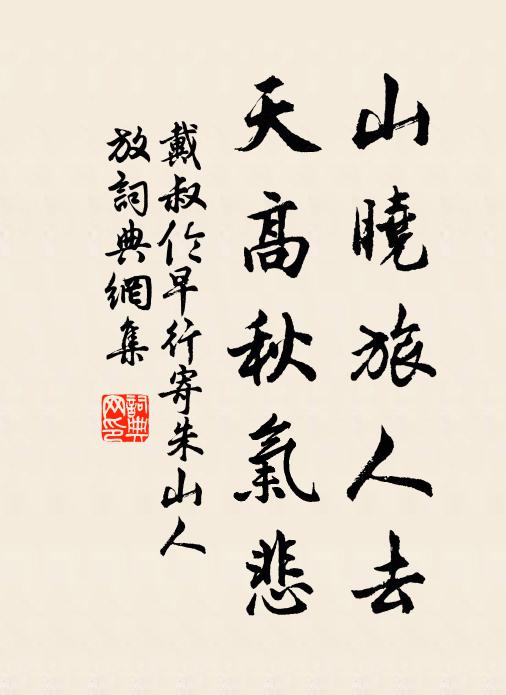 山曉旅人去
天高秋氣悲
戴叔伦早行寄朱山人
放詞典網集
詞典
网印